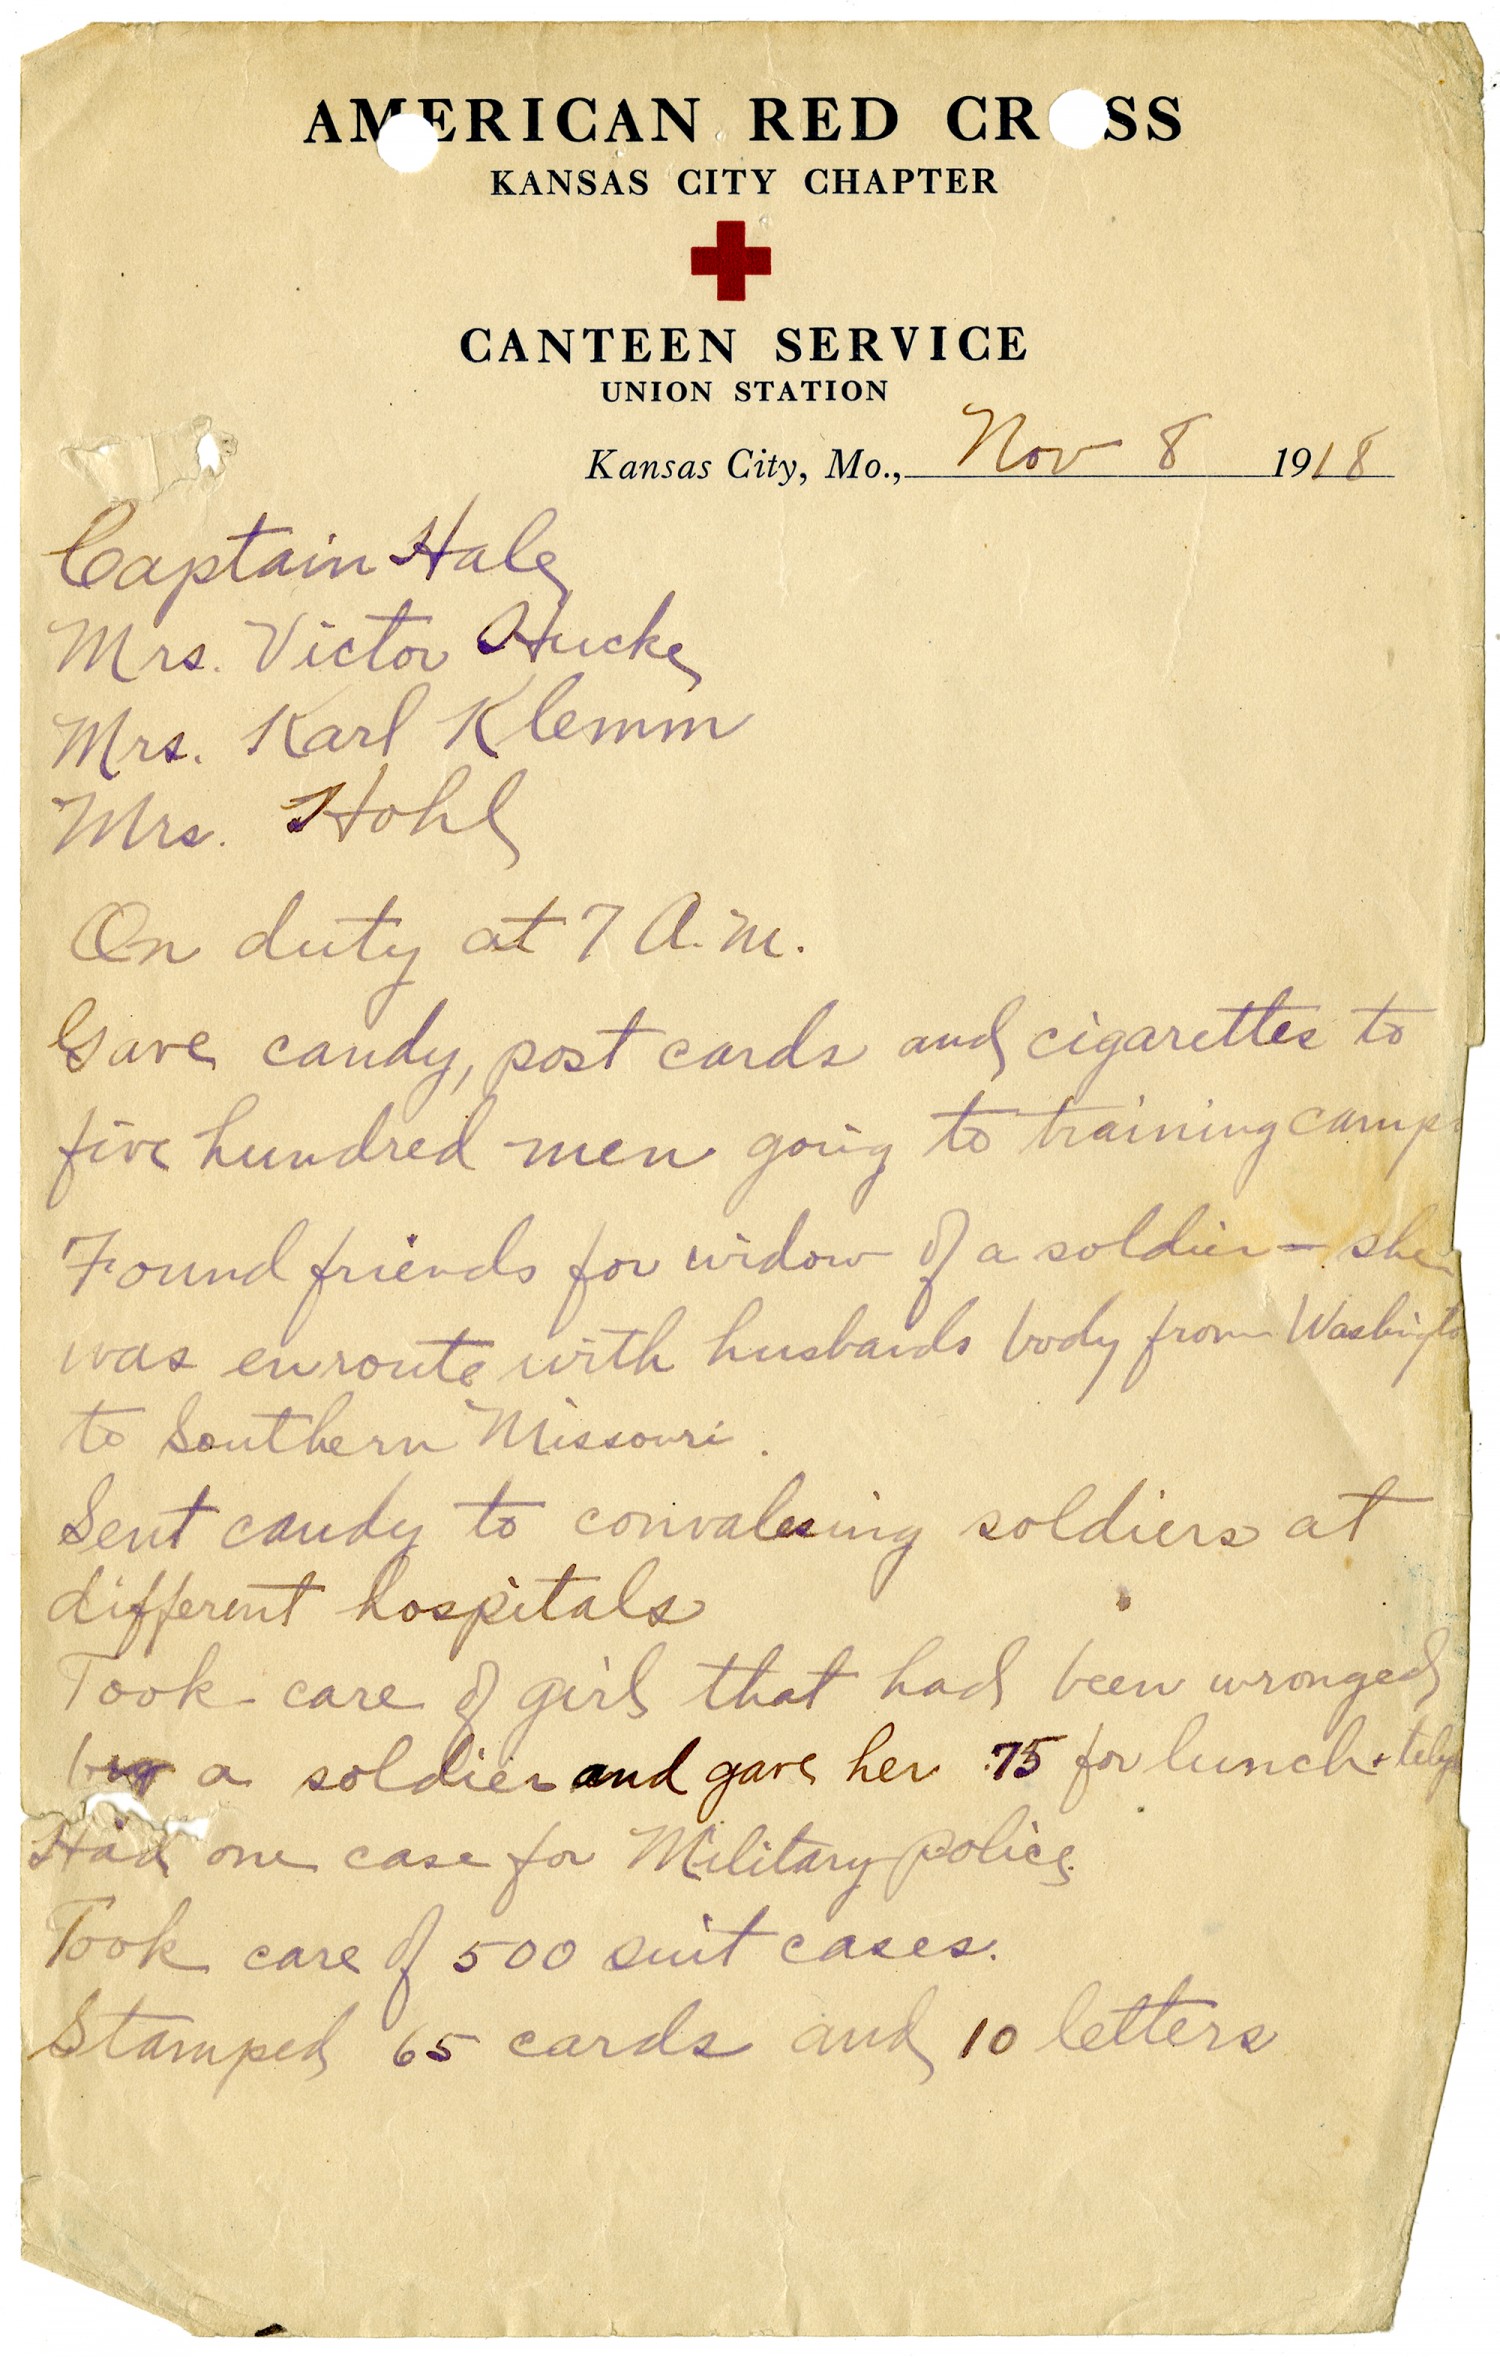 AMERICAN RED CROSS
KANSAS CITY CHAPTER
CANTEEN SERVICE
UNION STATION
Kansas City, Mo., Nov 8 1918
Captain Hale
Mrs. Victor Hucke
Mrs. Karl Klemm
Mrs. Hohl
On duty at 7 A.M.
Gave candy, post cards and cigarettes to
five hundred men going to training camps
Found friends for widow of a soldier - she
was enroute with husbands body from Washington
to Southern Missouri.
Sent candy to convalesing soldiers at
different hospitals
Took care of girl that had been wronged
by a soldier and gave her .75 for lunch +
Had one case for Military police.
Took care of 500 suit cases.
Stamped 65 cards and 10 letters